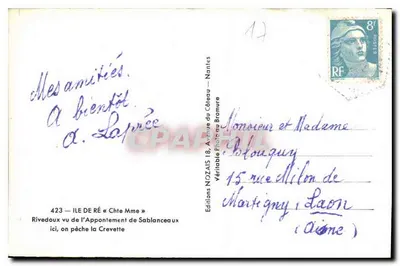 17
8F
RF
Mes amitiés.
A bientôt
A. Laprée
423 — ILE DE RÉ « Chte Mme »
Rivedoux vu de l'Appontement de Sablanceaux
ici, on pêche la Crevette
Editions NOZAIS 18, Avenue du Côteau — Nantes
Véritable Photo au Bromure
Monsieur et Madame
15 rue Milon de
Martigny, Laon
(Aisne)